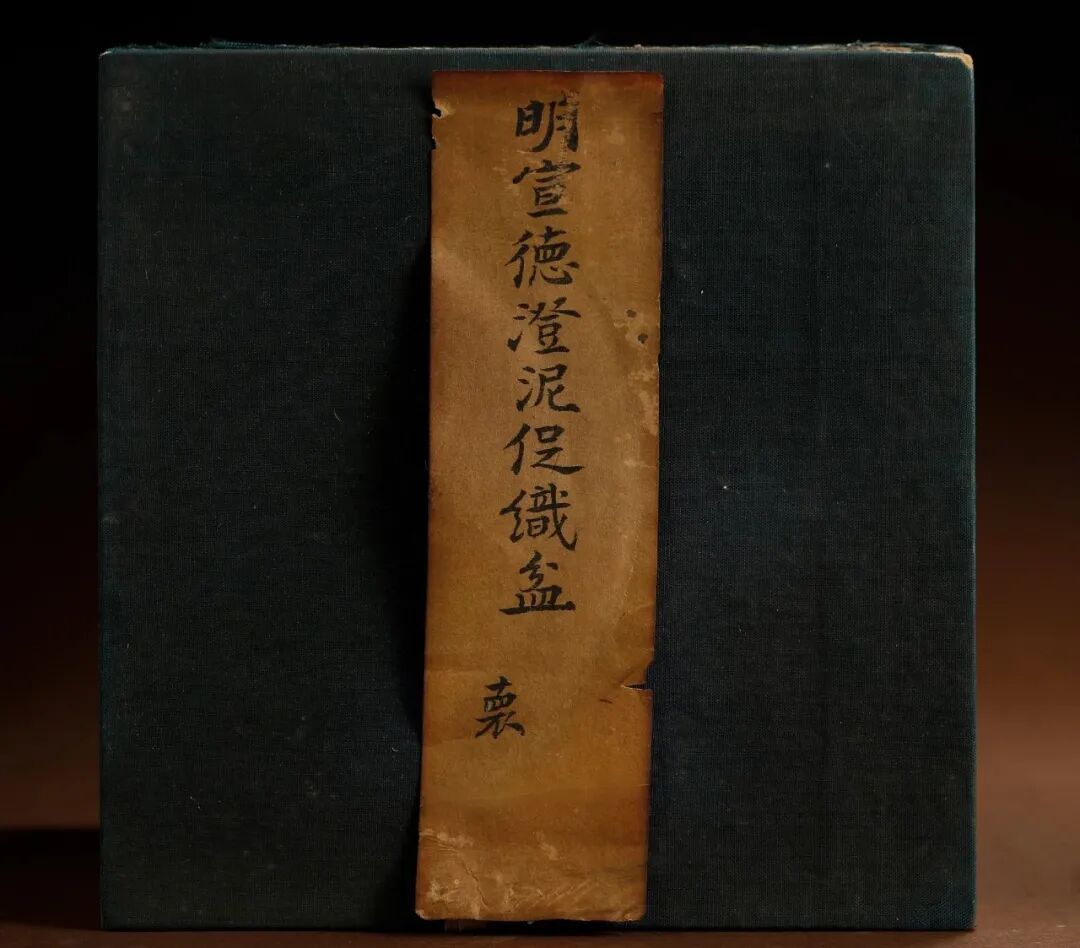 明宣德澄泥促織盆